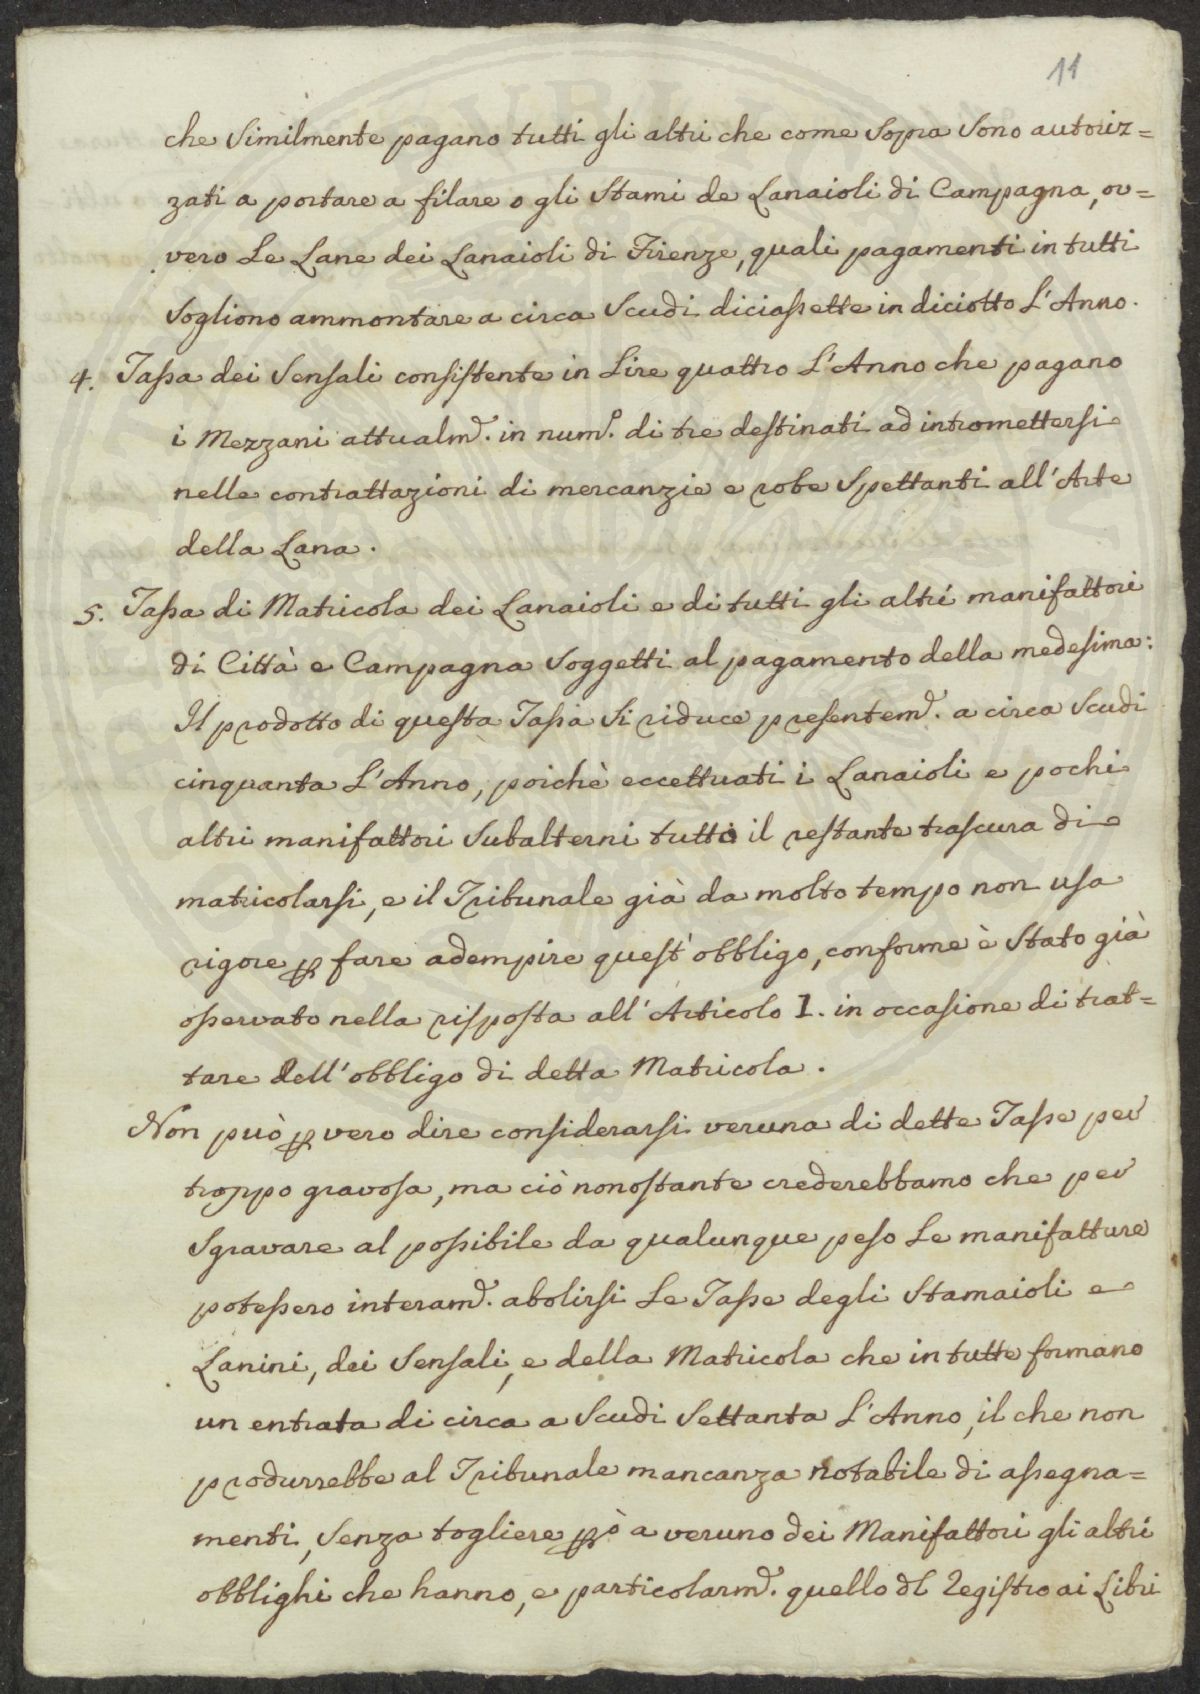 11
che Similmente pagano tutti gli altri che come Sopra Sono autoriz=
zati a portare a filare o gli Stami de Lanaioli di Campagna, ov=
vero Le Lane dei Lanaioli di Firenze, quali pagamenti in tutti
Sogliono ammontare a circa Scudi diciassette in diciotto L'Anno.
4. Tassa dei Sensali consistente in Lire quattro L'Anno che pagano
i Mezzani attualm.e in num.o di tre destinati ad intromettersi
nelle contrattazioni di mercanzie e robe Spettanti all'Arte
della Lana.
5. Tassa di Matricola dei Lanaioli e di tutti gli altri manifattori
di Città e Campagna Soggetti al pagamento della medesima:
Il prodotto di questa Tassa Si riduce presentem.e a circa Scudi
cinquanta L'Anno, poichè eccettuati i Lanaioli e pochi
altri manifattori Subalterni tutto il restante trascura di
matricolarsi, e il Tribunale già da molto tempo non usa
rigore p fare adempire quest'obbligo, conforme è Stato già
osservato nella risposta all'Articolo 1. in occasione di trat=
tare dell'obbligo di detta Matricola.
Non può p vero dire considerarsi veruna di dette Tasse per
troppo gravosa, ma ciò nonostante crederebbamo che per
Sgravare al possibile da qualunque peso Le manifatture
potessero interam.e abolirsi Le Tasse degli Stamaioli e
Lanini, dei Sensali, e della Matricola che in tutte formano
un entrata di circa a Scudi Settanta L'Anno, il che non
produrrebbe al Tribunale mancanza notabile di assegna=
menti, Senza togliere pò a veruno dei Manifattori gli altri
obblighi che hanno, e particolarm.e quello dl Registro ai Libri